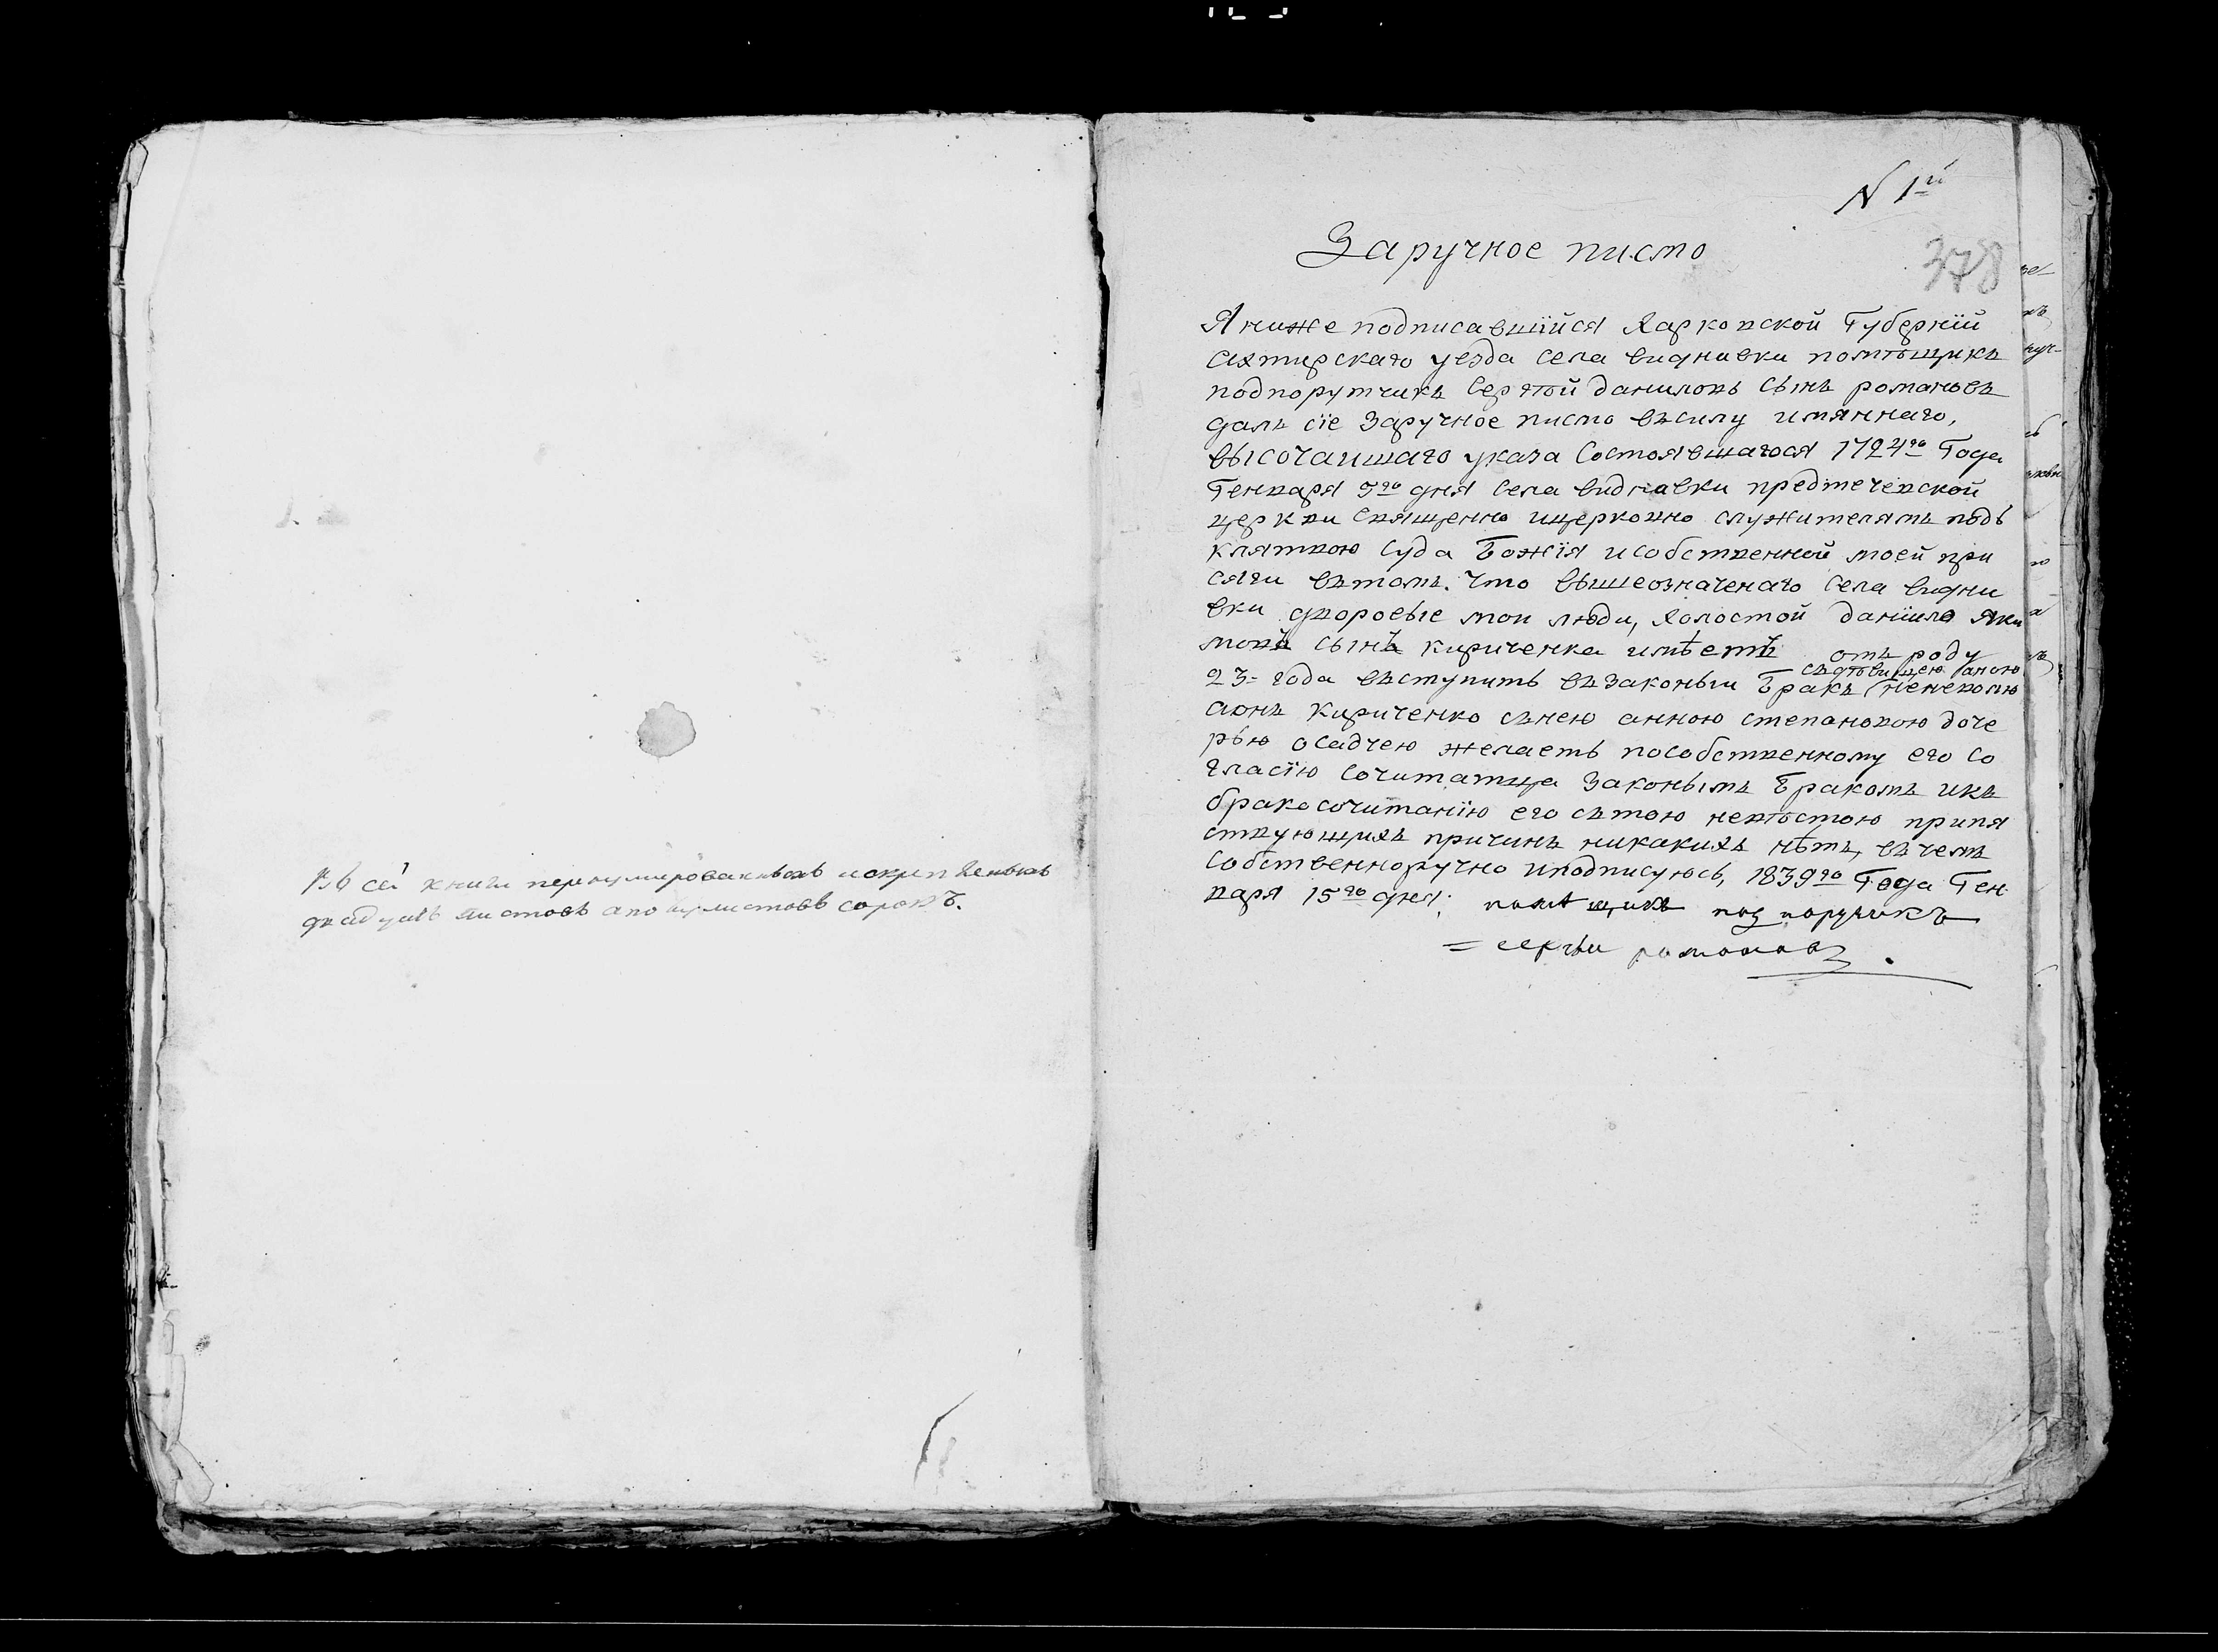 въ сей книги перенумированныхъ искрепленныхъ
двадцать листовъ апо полулистовъ сорокъ.
N 1й
378
Заручное писмо
Я ниже подписавшійся Харковской Губерніи
Ахтирскаго уезда села видновки помѣщикъ
подпорутчикъ Сергѣй даниловъ сынъ романовъ
далъ сіе Заручное писмо въсилу имяннаго,
высочаишаго указа Состоявшагося 1724го Года
Генваря 5го дня Села видновки предтечевской
церкви Священно ицерковно служителямъ подъ
клятвою суда Божія исобственной моей при
сяги вътомъ. что вышеозначенаго Села видни
вки дворовые мои люди, Холостой даніило Яки
мовъ сынъ кириченка имѣетъ отъ роду
съдѣвицею аною
23- года въступить въЗаконыи Бракъ
аонъ кириченко сънею анною степановою доче
рью осадчею желаетъ пособственному его со
гласію Сочитатца Законымъ Бракомъ икъ
бракосочитанію его сътою невѣстою припя
ствующихъ причинъ никакихъ нѣтъ, въчемъ
Собственноручно иподписуюсь, 1839го Года Ген
варя 15го дня; помѣщикъ подпоручикъ
= сергѣи романовъ